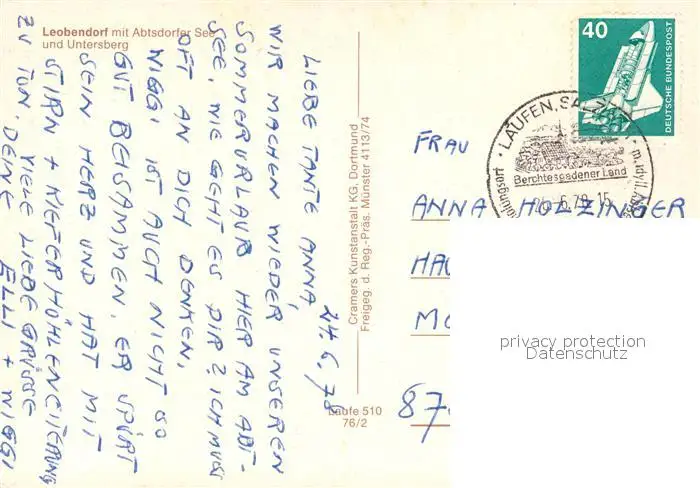 Leobendorf mit Abtsdorfer See
und Untersberg
24.6.78
LIEBE TANTE ANNA,
WIR MACHEN WIEDER UNSEREN
SOMMERURLAUB HIER AM ABT-
SEE. WIE GEHT ES DIR? ICH MUSS
OFT AN DICH DENKEN,
WIGGI IST AUCH NICHT SO
GUT BEISAMMEN. ER SPÜRT
SEIN HERZ UND HAT MIT
STIRN + KIEFERHÖHLENEITERUNG
ZU TUN. VIELE LIEBE GRÜSSE
DEINE ELLI + WIGGI
Cramers Kunstanstalt KG, Dortmund
Freigeg. d. Reg.-Präs. Münster 4113/74
Laufe 510
76/2
40
DEUTSCHE BUNDESPOST
LAUFEN, SALZACH
Berchtesgadener Land
6.78-15
FRAU
ANNA HOLZINGER
HAU
MO
87
privacy protection
Datenschutz